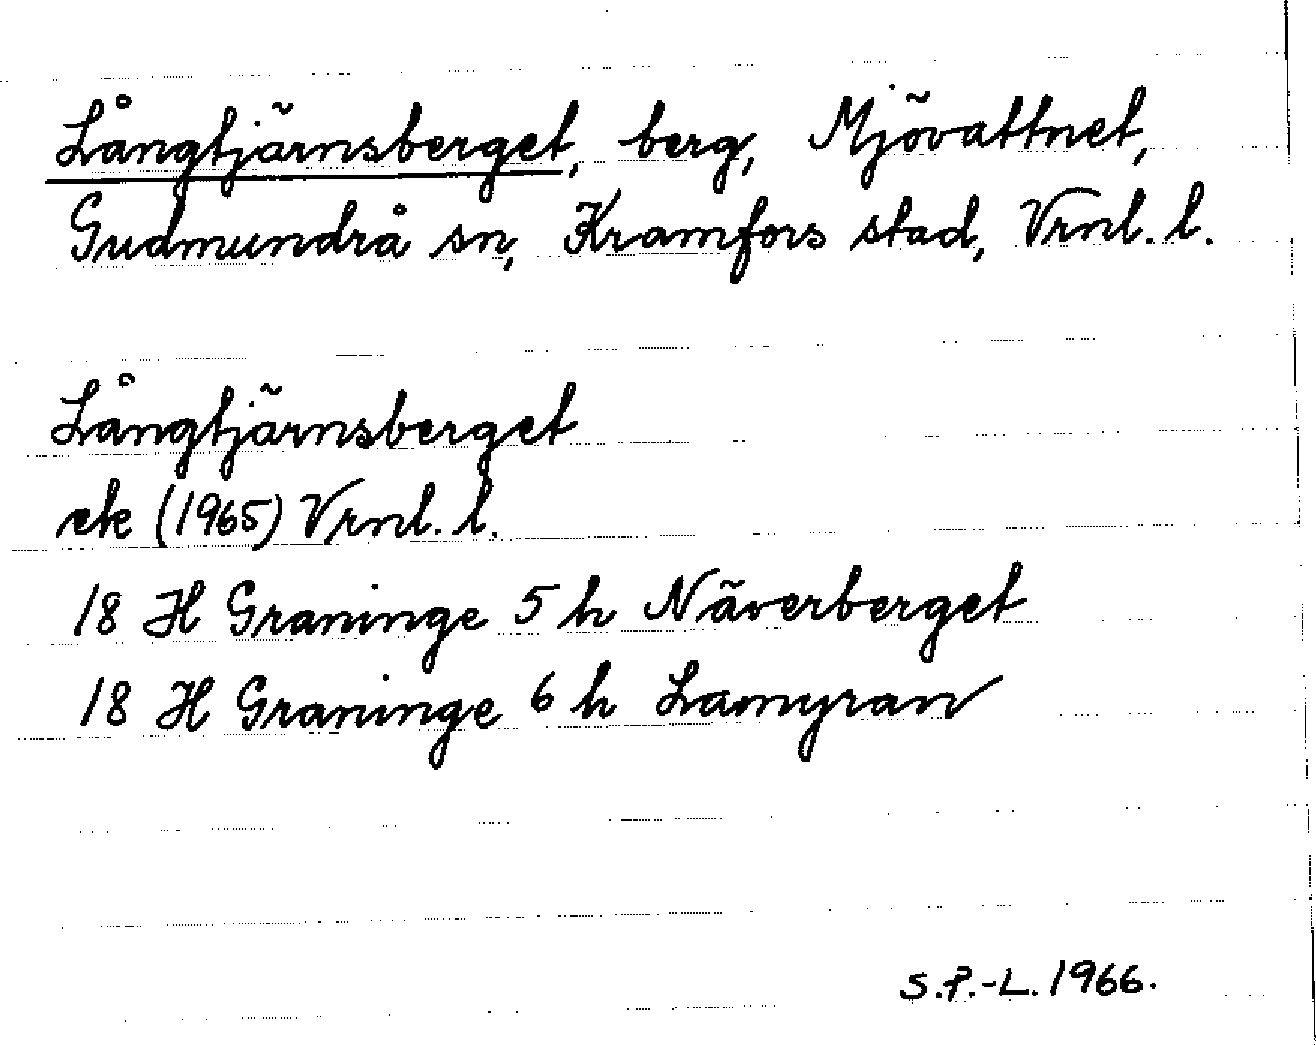 Långtjärnsberget, berg, Mjövattnet,
Gudmundrå sn, Kramfors stad, Vrnl. l.
Långtjärnsberget
ek (1965) Vrnl. l.
18 H Graninge 5 h Näverberget
18 H Graninge 6 h Lamyran
S.P.-L. 1966.